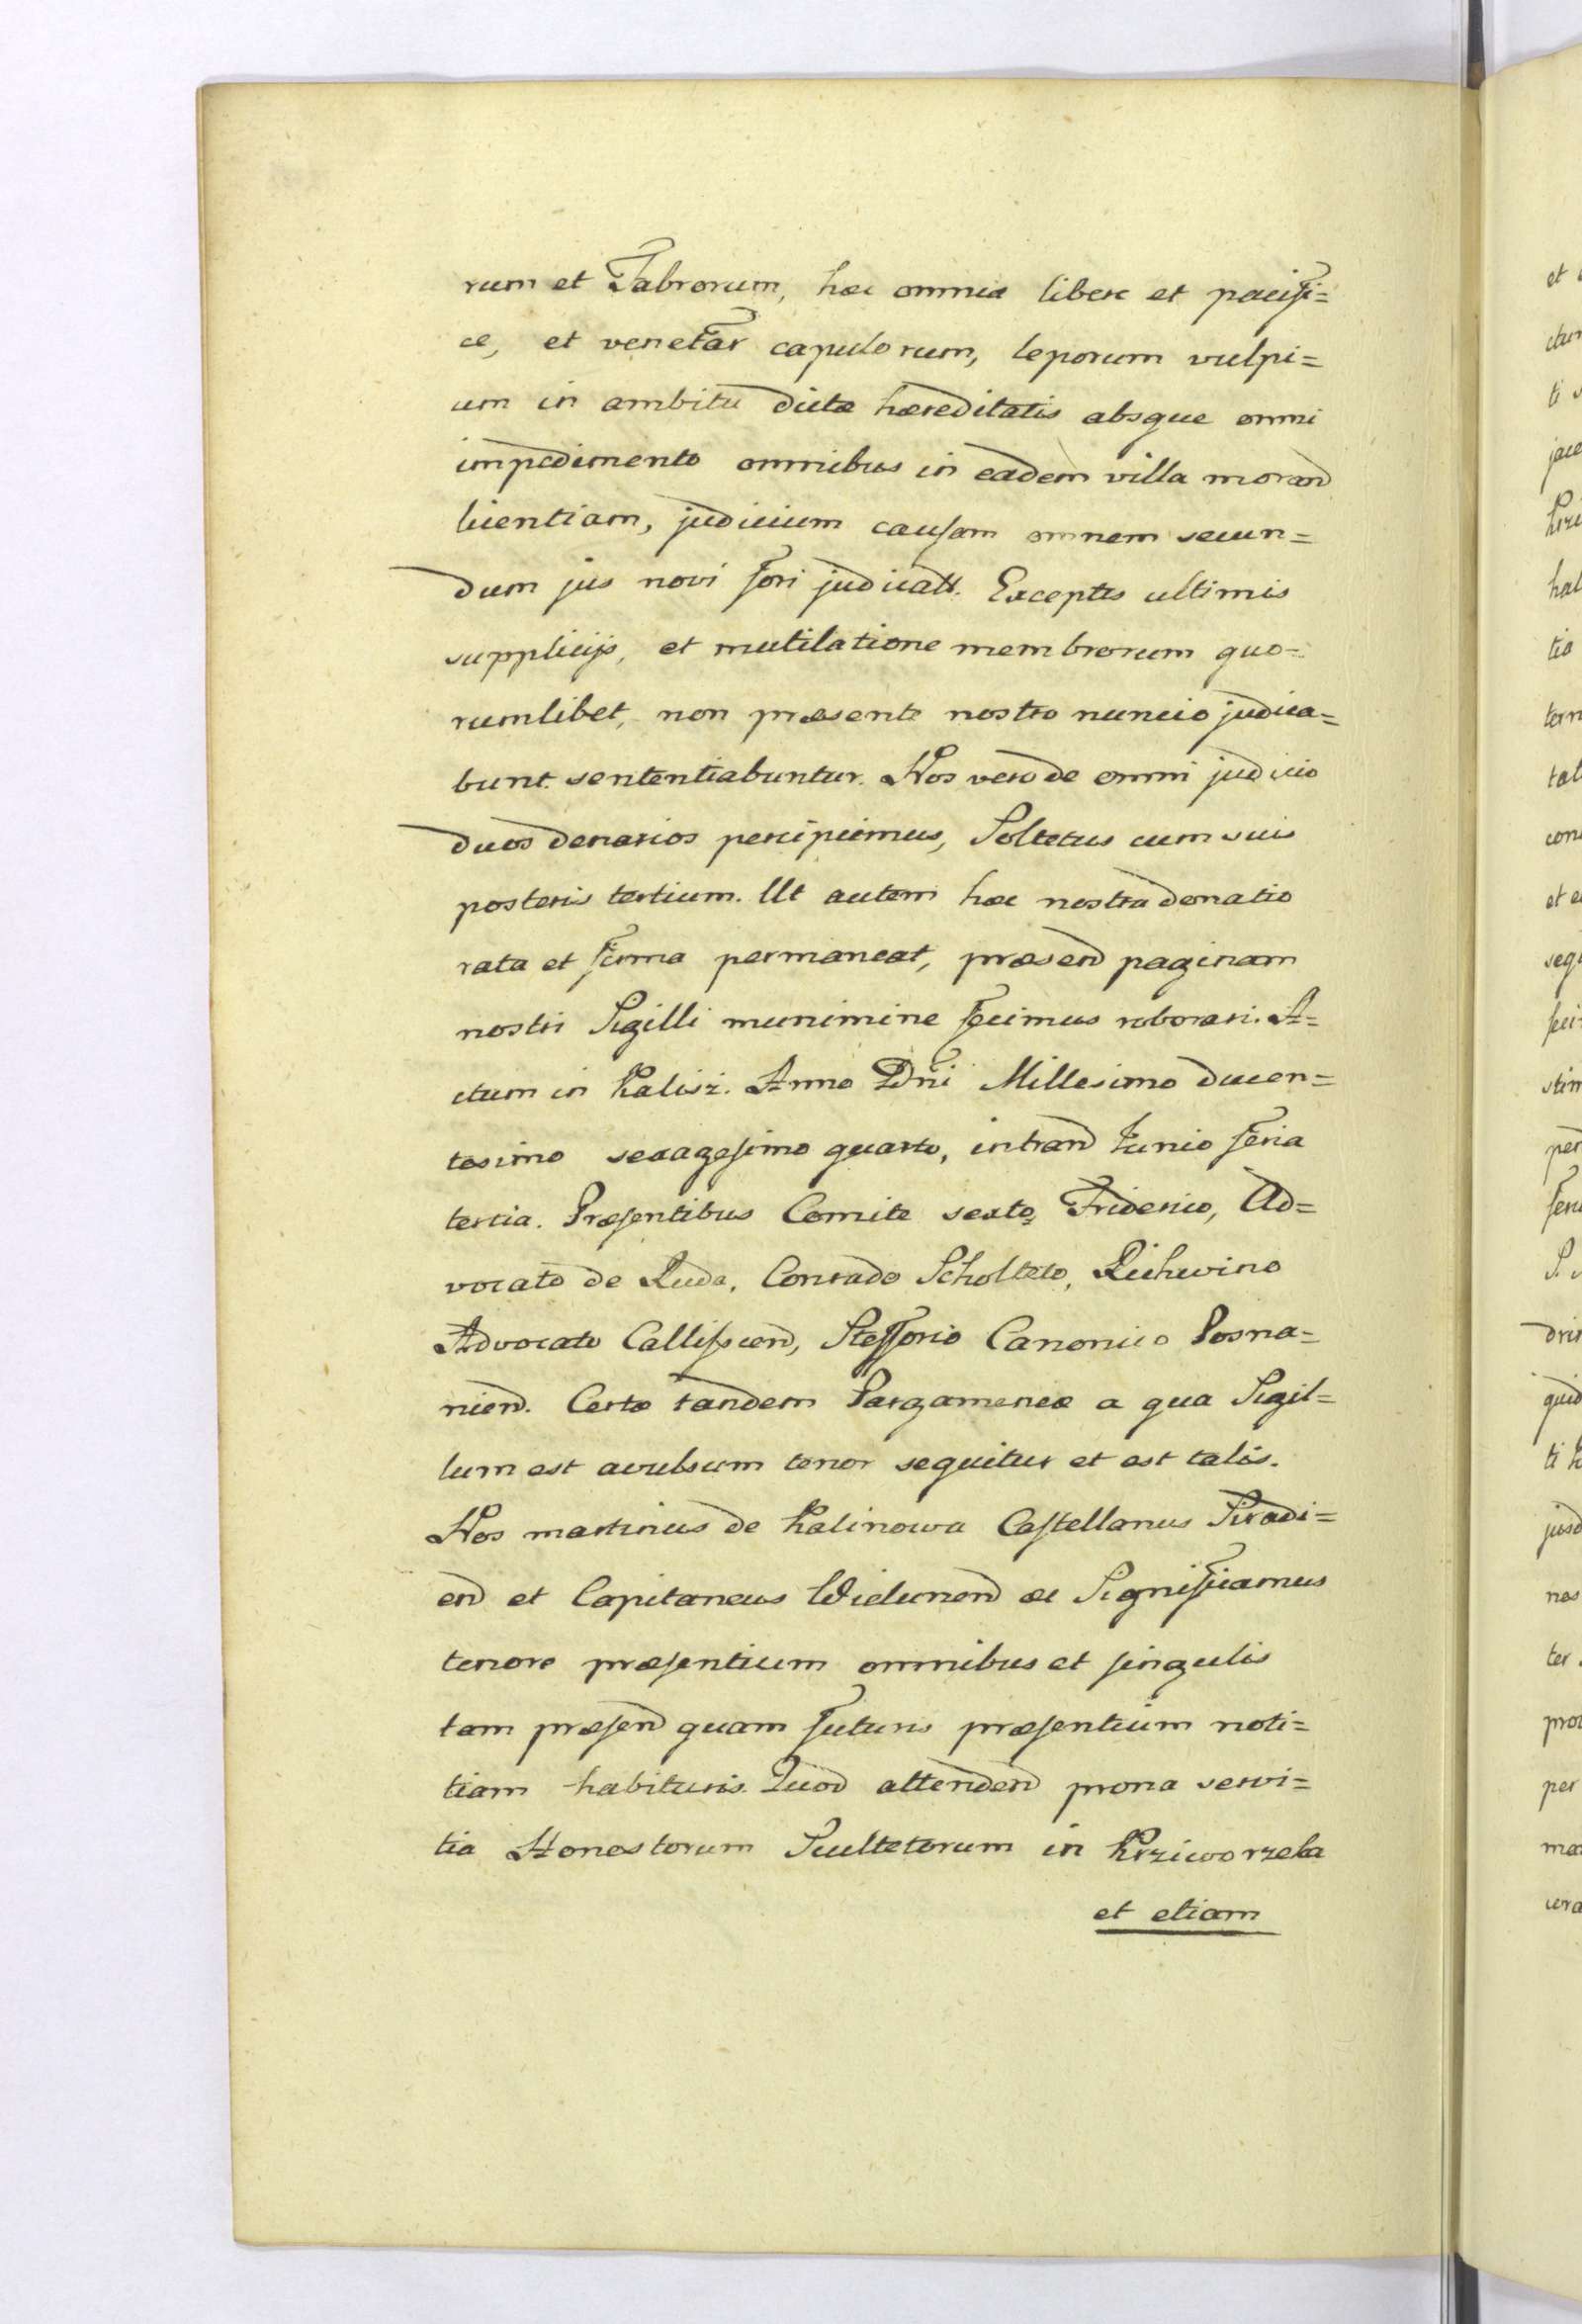 rum et Fabrorum, hæc omnia libere et pacifi=
ce, et venetar capulorum, leporum vulpi=
um in ambitu dictæ hæreditatis absque omni
impedimento omnibus in eadem villa morand
licentiam, judicium causam omnem secun=
dum jus novi fori judicatt. Exceptis ultimis
supplicijs, et mutilatione membrorum quo=
rumlibet, non præsente nostro nuncio judica=
bunt. sententiabuntur. Nos vero de omni judicio
duos denarios percipiemus, Soltetus cum suis
posteris tertium. Ut autem hæc nostra donatio
rata et firma permaneat, præsend paginam
nostri Sigilli munimine fecimus roborari. A=
ctum in Kalisz. Anno Dni Millesimo ducen=
tesimo sexagesimo quarto, intrand Junio feria
tertia. Præsentibus Comite sexto, Friderico, Ad=
vocato de Ruda, Conrado Scholteto, Richwino
Advocato Callisscend, Stessorio Canonico Posna=
niend. Certæ tandem Pargameneæ a qua Sigil=
lum est avulsum tenor sequitur et est talis.
Nos martinus de Kalinowa Castellanus Siradi=
end et Capitaneus Wielunend &c Significamus
tenore præsentium omnibus et singulis
tam præsend quam futuris præsentium noti=
tiam habituris. Quod attendend prona servi=
tia Honestorum Scultetorum in Krziworzeka
et etiam
et
ctum
ti
jace
Krzi
hal
tio
tern
tal
con
et e
seq
feci
stim
per
feri
S.
drin
quid
ti K
jusd
nos
ter
pro
per
ma
cora